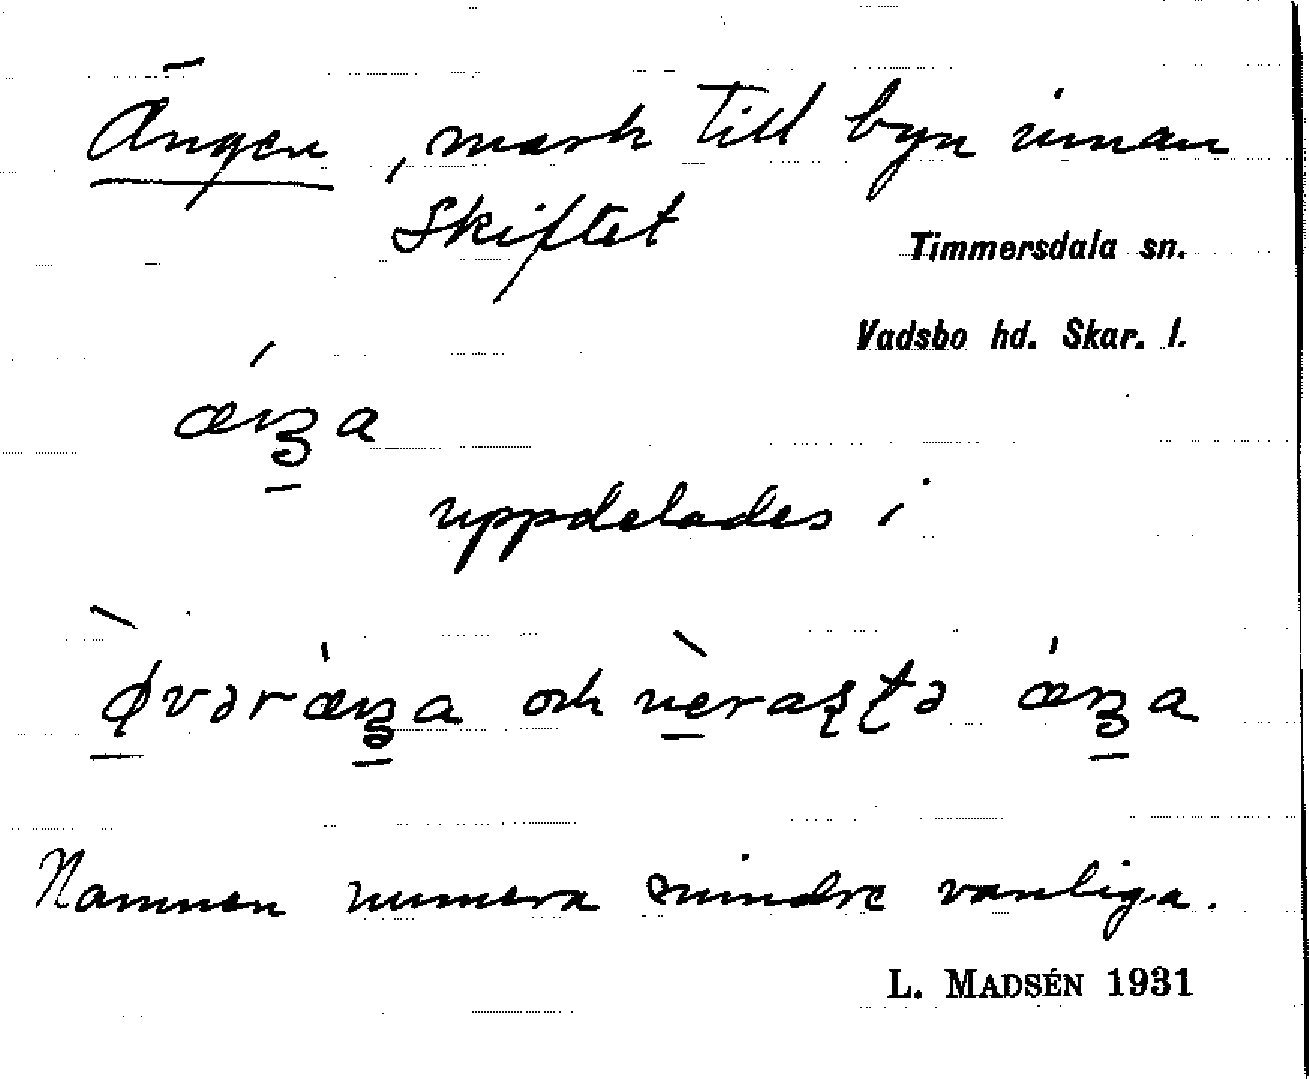 Ängen, mark till byn innan
skiftet
Timmersdala sn.
Vadsbo hd. Skar. l.
uppdelades i
och
Namnen numera mindre vanliga.
L. MADSÉN 1931